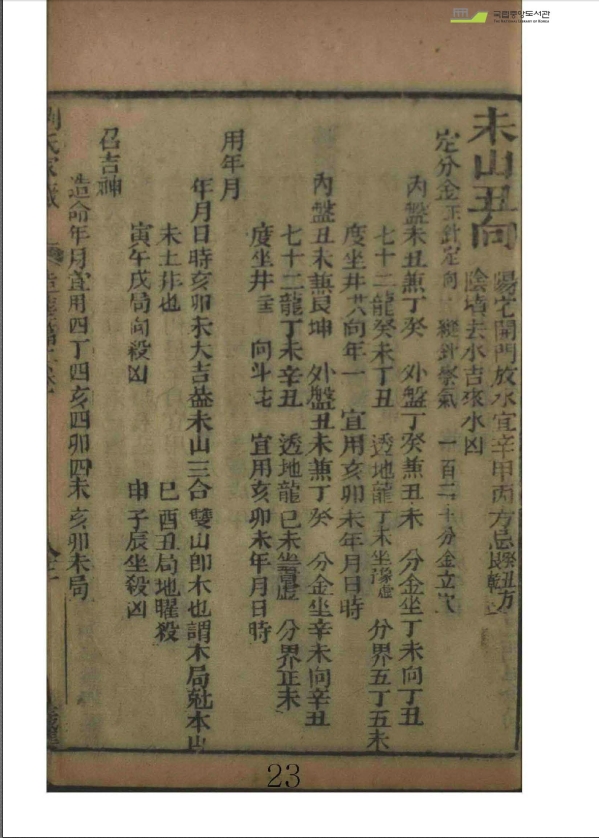 국립중앙도서관
THE NATIONAL LIBRARY OF KOREA
未山丑向
陽宅開門放水宜辛甲丙方忌癸丑方
陰墳去水吉來水凶
定分金正針定向 縫針乘氣 一百二十分金立穴
內盤未丑兼丁癸 外盤丁癸兼丑未 分金坐丁未向丁丑
七十二龍癸未丁丑 透地龍丁未坐 虛 分界五丁五未
度坐井 向年一 宜用亥卯未年月日時
內盤丑未兼艮坤 外盤丑未兼丁癸 分金坐辛未向辛丑
七十二龍丁未辛丑 透地龍己未坐 虛 分界正未
度坐井 向斗 宜用亥卯未年月日時
用年月
年月日時亥卯未大吉益未山三合雙山卽木也謂木局尅本山
未土非也 巳酉丑局地曜殺
寅午戌局向殺凶 申子辰坐殺凶
召吉神
造命年月宜用四丁四亥四卯四未亥卯未局
23